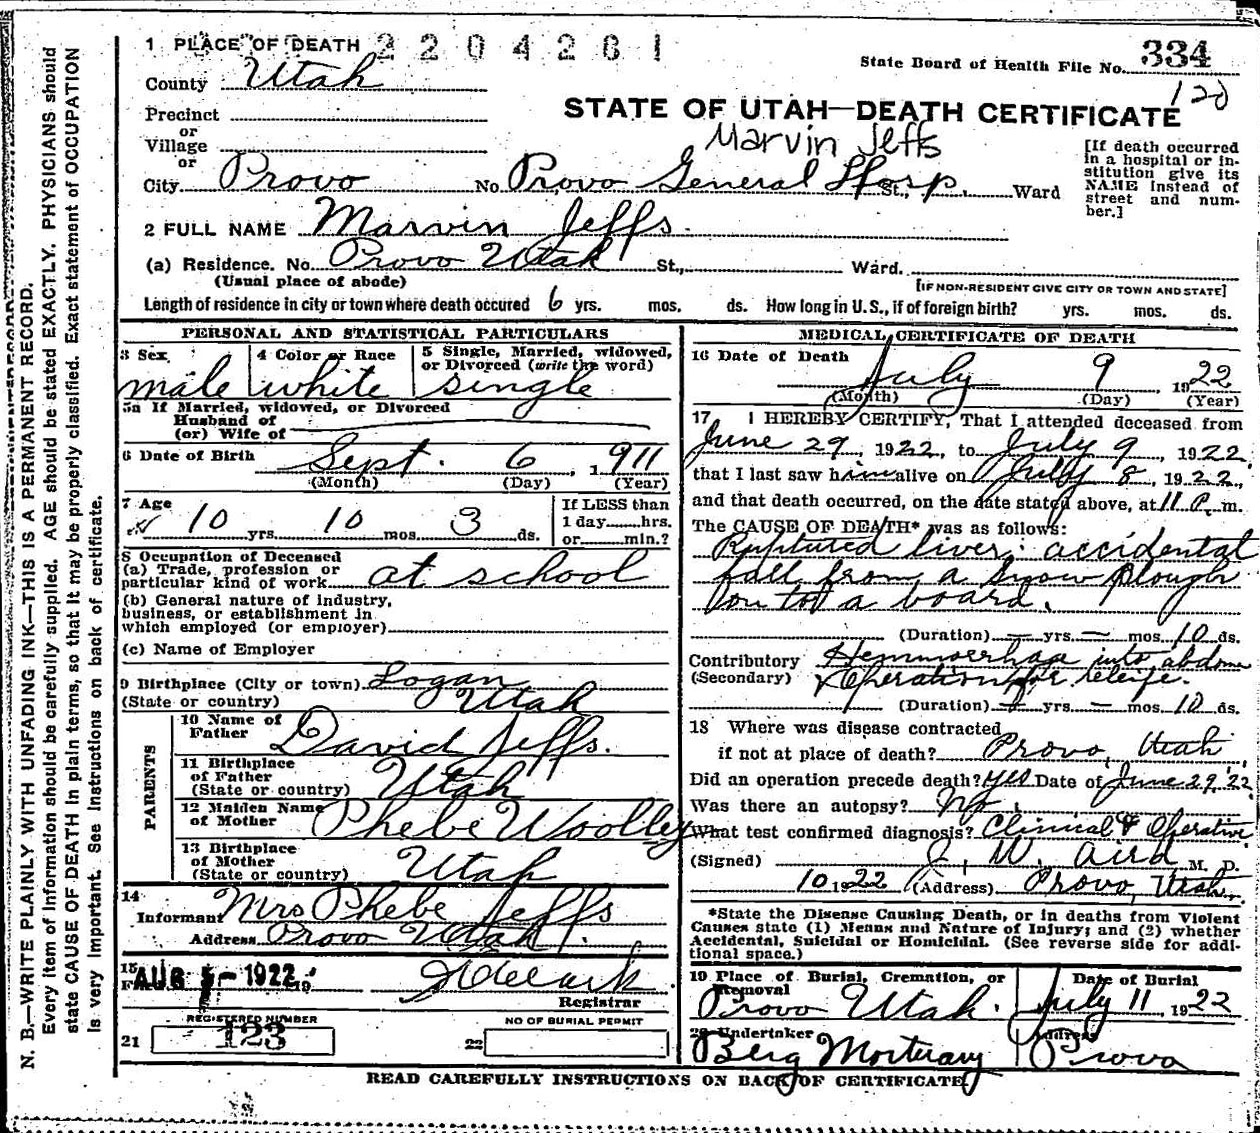 1 PLACE OF DEATH 2204261
State Board of Health File No. 334
County Utah
120
STATE OF UTAH—DEATH CERTIFICATE
Precinct
or
Village
or
Marvin Jeffs
[If death occurred in a hospital or institution give its NAME instead of street and number.]
City Provo No. Provo General Hosp. St., Ward
2 FULL NAME Marvin Jeffs.
(a) Residence. No. Provo Utah St., Ward.
(Usual place of abode) [IF NON-RESIDENT GIVE CITY OR TOWN AND STATE]
Length of residence in city or town where death occured 6 yrs. mos. ds. How long in U.S., if of foreign birth? yrs. mos. ds.
PERSONAL AND STATISTICAL PARTICULARS
3 Sex 4 Color or Race 5 Single, Married, widowed, or Divorced (write the word)
male white single
5a If Married, widowed, or Divorced
Husband of
(or) Wife of
6 Date of Birth Sept. 6, 1911
(Month) (Day) (Year)
7 Age 10 yrs. 10 mos. 3 ds.
If LESS than
1 day......hrs.
or......min.?
8 Occupation of Deceased
(a) Trade, profession or
particular kind of work at school
(b) General nature of industry,
business, or establishment in
which employed (or employer)
(c) Name of Employer
9 Birthplace (City or town) Logan
(State or country) Utah
PARENTS
10 Name of
Father David Jeffs.
11 Birthplace
of Father
(State or country) Utah
12 Maiden Name
of Mother Phebe Woolley
13 Birthplace
of Mother
(State or country) Utah
14
Informant Mrs Phebe Jeffs
Address Provo Utah.
15
AUG 5-1922 19
Registrar
REGISTERED NUMBER
21 123
NO OF BURIAL PERMIT
22
MEDICAL CERTIFICATE OF DEATH
16 Date of Death
July 9 1922
(Month) (Day) (Year)
17 I HEREBY CERTIFY, That I attended deceased from
June 29, 1922, to July 9, 1922,
that I last saw him alive on July 8, 1922,
and that death occurred, on the date stated above, at 11 P. m.
The CAUSE OF DEATH* was as follows:
Ruptured liver; accidental
fall from a snow plough
on to a board.
(Duration) — yrs. — mos. 10 ds.
Contributory Hemmorrhage into abdom
(Secondary) Operation for releife.
(Duration) — yrs. — mos. 10 ds.
18 Where was disease contracted
if not at place of death? Provo, Utah
Did an operation precede death? yes Date of June 29, '22
Was there an autopsy? No.
What test confirmed diagnosis? Clinical & Operative
(Signed) J. W. Aird M. D.
10 1922 (Address) Provo, Utah.
*State the Disease Causing Death, or in deaths from Violent
Causes state (1) Means and Nature of Injury; and (2) whether
Accidental, Suicidal or Homicidal. (See reverse side for addi-
tional space.)
19 Place of Burial, Cremation, or Removal Date of Burial
Provo Utah. July 11, 1922
20 Undertaker Address
Berg Mortuary Provo
READ CAREFULLY INSTRUCTIONS ON BACK OF CERTIFICATE
N. B.—WRITE PLAINLY WITH UNFADING INK—THIS IS A PERMANENT RECORD.
Every item of information should be carefully supplied. AGE should be stated EXACTLY. PHYSICIANS should
state CAUSE OF DEATH in plain terms, so that it may be properly classified. Exact statement of OCCUPATION
is very important. See Instructions on back of certificate.